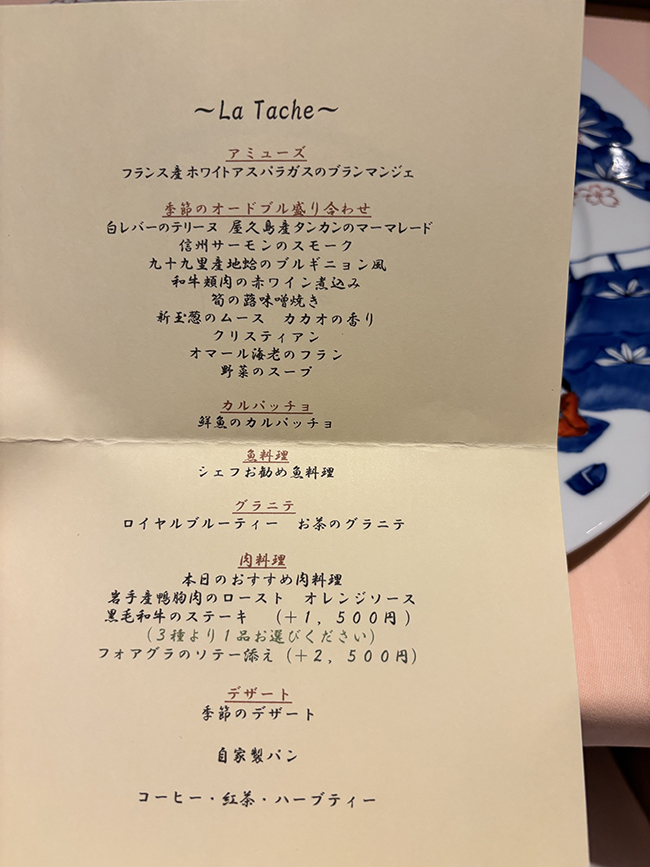 ～La Tache～
アミューズ
フランス産ホワイトアスパラガスのブランマンジェ
季節のオードブル盛り合わせ
白レバーのテリーヌ　屋久島産タンカンのマーマレード
信州サーモンのスモーク
九十九里産地蛤のブルギニョン風
和牛頬肉の赤ワイン煮込み
筍の蕗味噌焼き
新玉葱のムース　カカオの香り
クリスティアン
オマール海老のフラン
野菜のスープ
カルパッチョ
鮮魚のカルパッチョ
魚料理
シェフお勧め魚料理
グラニテ
ロイヤルブルーティー　お茶のグラニテ
肉料理
本日のおすすめ肉料理
岩手産鴨胸肉のロースト　オレンジソース
黒毛和牛のステーキ　（＋１，５００円）
（３種より１品お選びください）
フォアグラのソテー添え（＋２，５００円）
デザート
季節のデザート
自家製パン
コーヒー・紅茶・ハーブティー